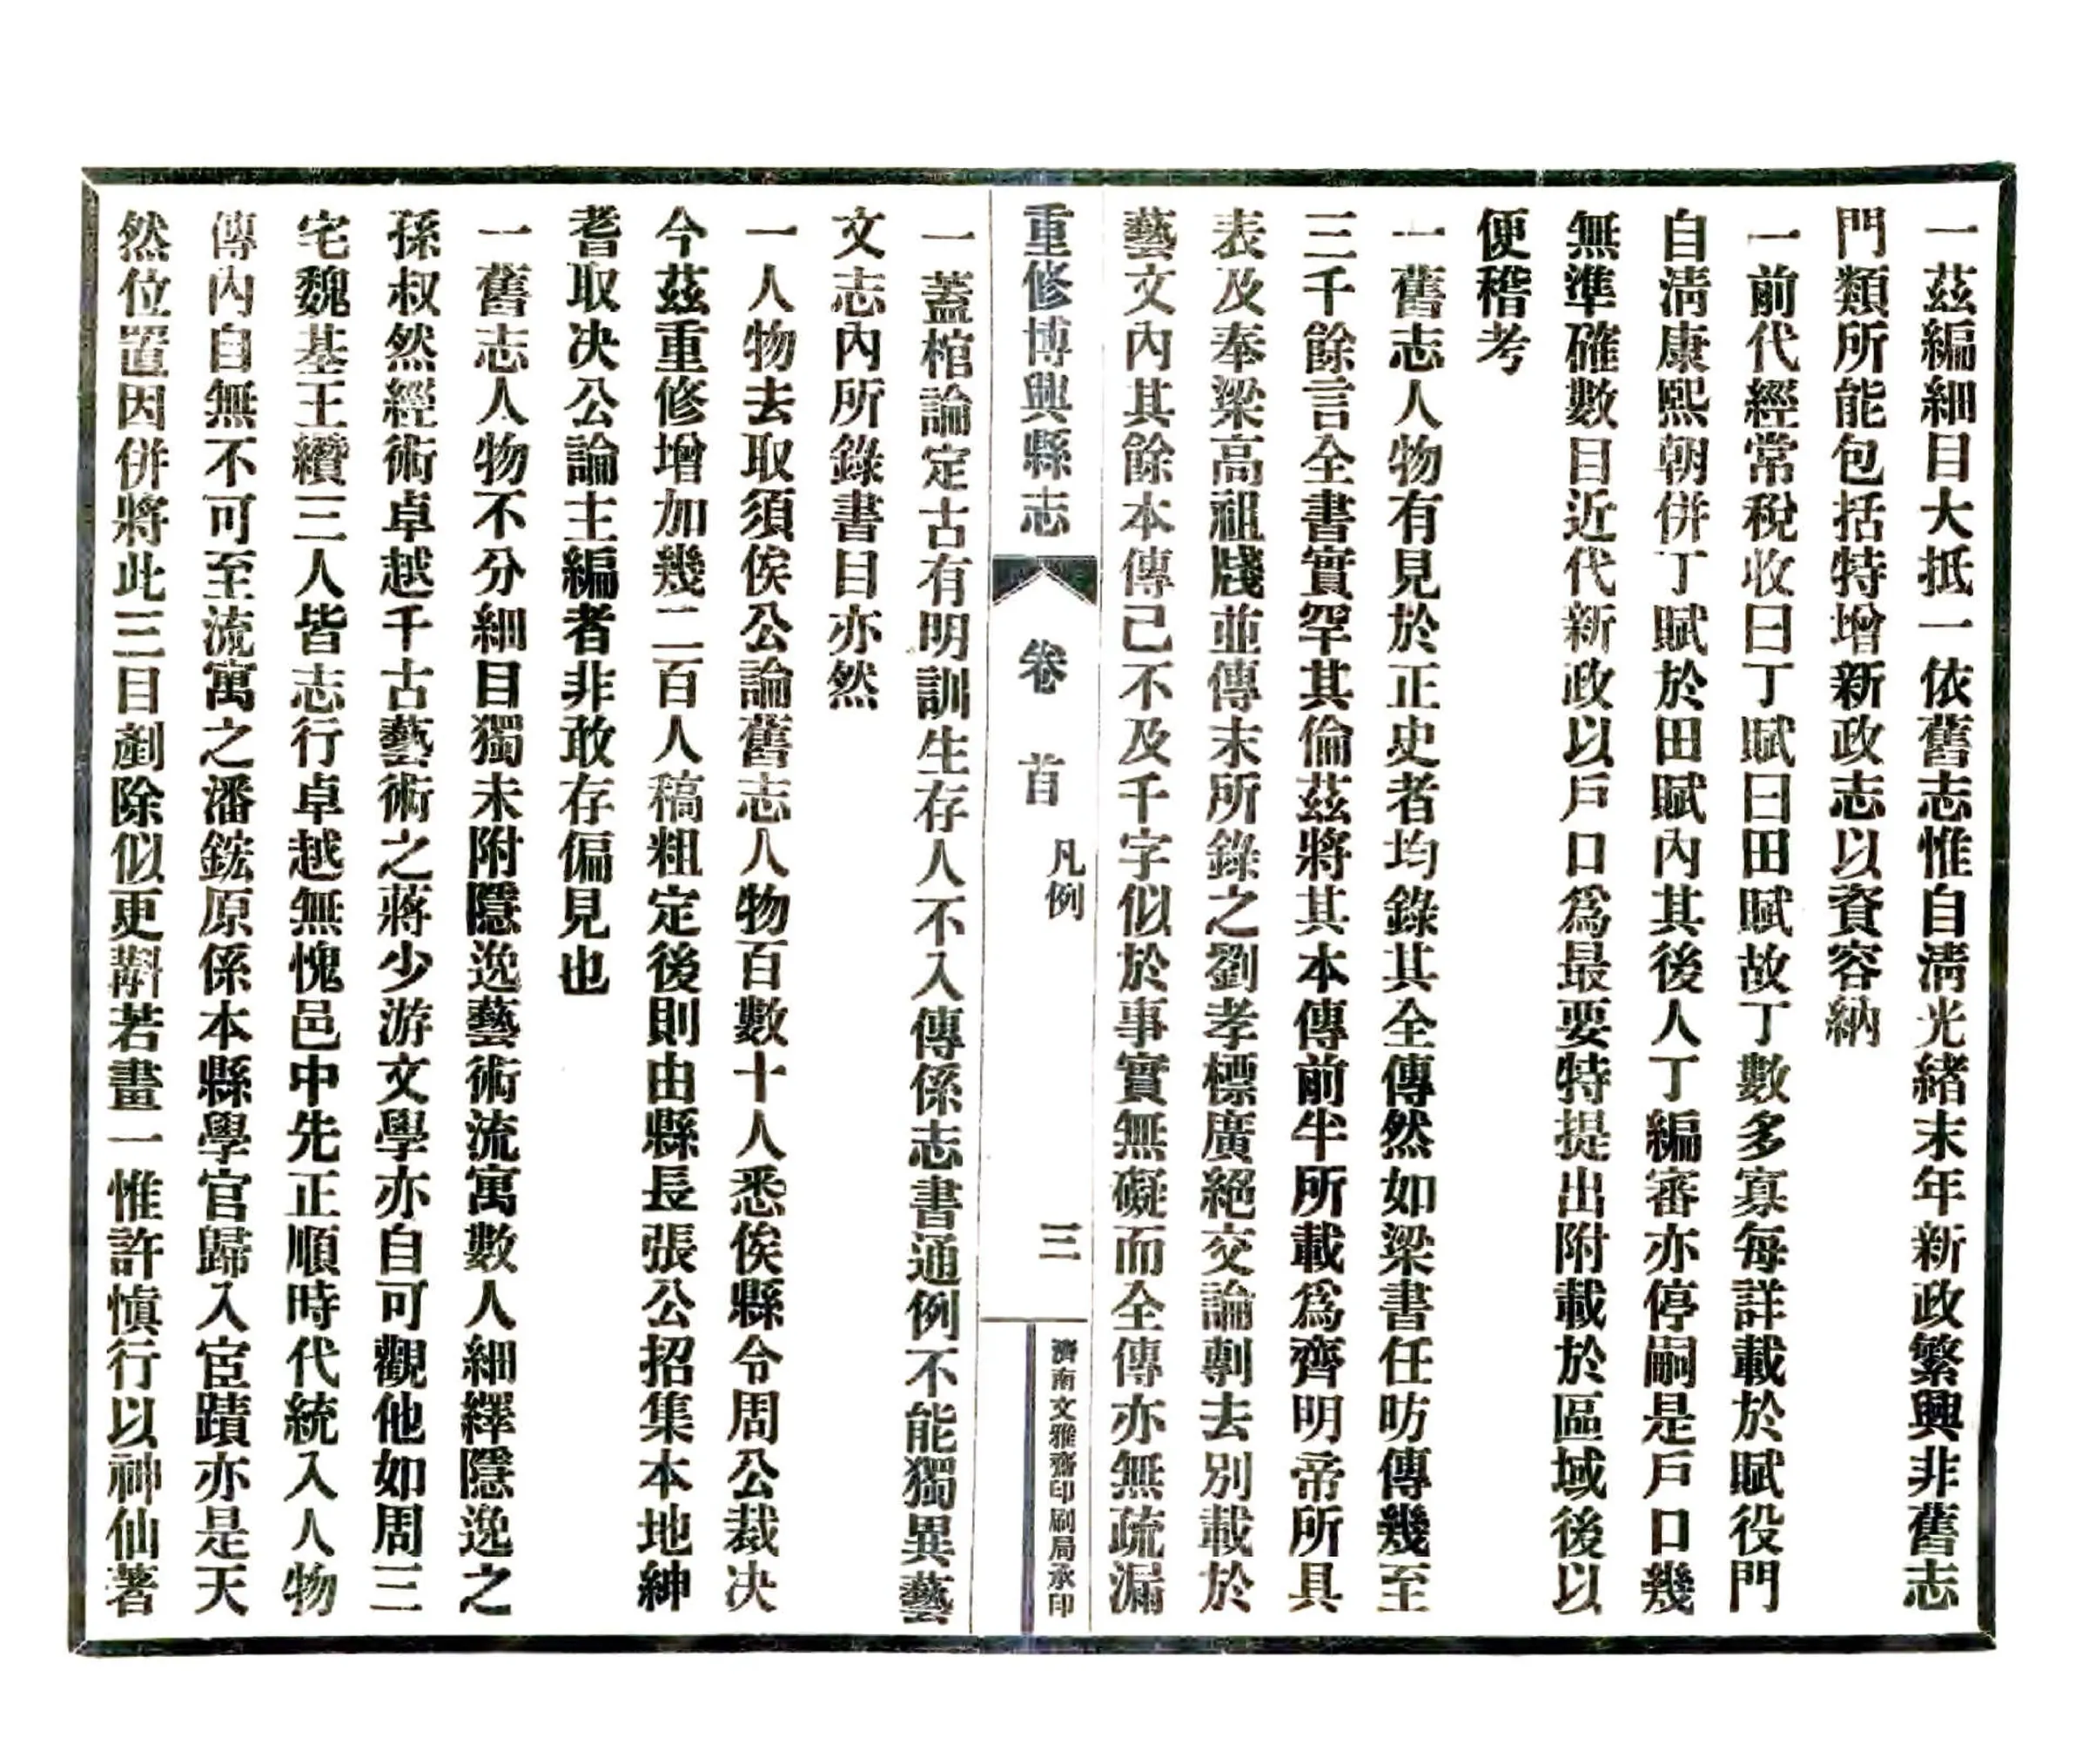 一茲編細目大抵一依舊志惟自清光緒末年新政繁興非舊志
門類所能包括特增新政志以資容納
一前代經常稅收曰丁賦曰田賦故丁數多寡每詳載於賦役門
自清康熙朝併丁賦於田賦內其後人丁編審亦停嗣是戶口幾
無準確數目近代新政以戶口爲最要特提出附載於區域後以
便稽考
一舊志人物有見於正史者均錄其全傳然如梁書任昉傳幾至
三千餘言全書實罕其倫茲將其本傳前半所載爲齊明帝所具
表及奉梁高祖牋並傳末所錄之劉孝標廣絕交論剸去別載於
藝文內其餘本傳己不及千字似於事實無礙而全傳亦無疏漏
重修博興縣志
卷首
凡例
三
濟南文雅齋印刷局承印
一蓋棺論定古有明訓生存人不入傳係志書通例不能獨異藝
文志內所錄書目亦然
一人物去取須俟公論舊志人物百數十人悉俟縣令周公裁决
今茲重修增加幾二百人稿粗定後則由縣長張公招集本地紳
耆取决公論主編者非敢存偏見也
一舊志人物不分細目獨未附隱逸藝術流寓數人細繹隱逸之
孫叔然經術卓越千古藝術之蔣少游文學亦自可觀他如周三
宅魏基王纘三人皆志行卓越無愧邑中先正順時代統入人物
傳內自無不可至流寓之潘鋐原係本縣學官歸入宦蹟亦是天
然位置因併將此三目剷除似更斠若畫一惟許愼行以神仙著